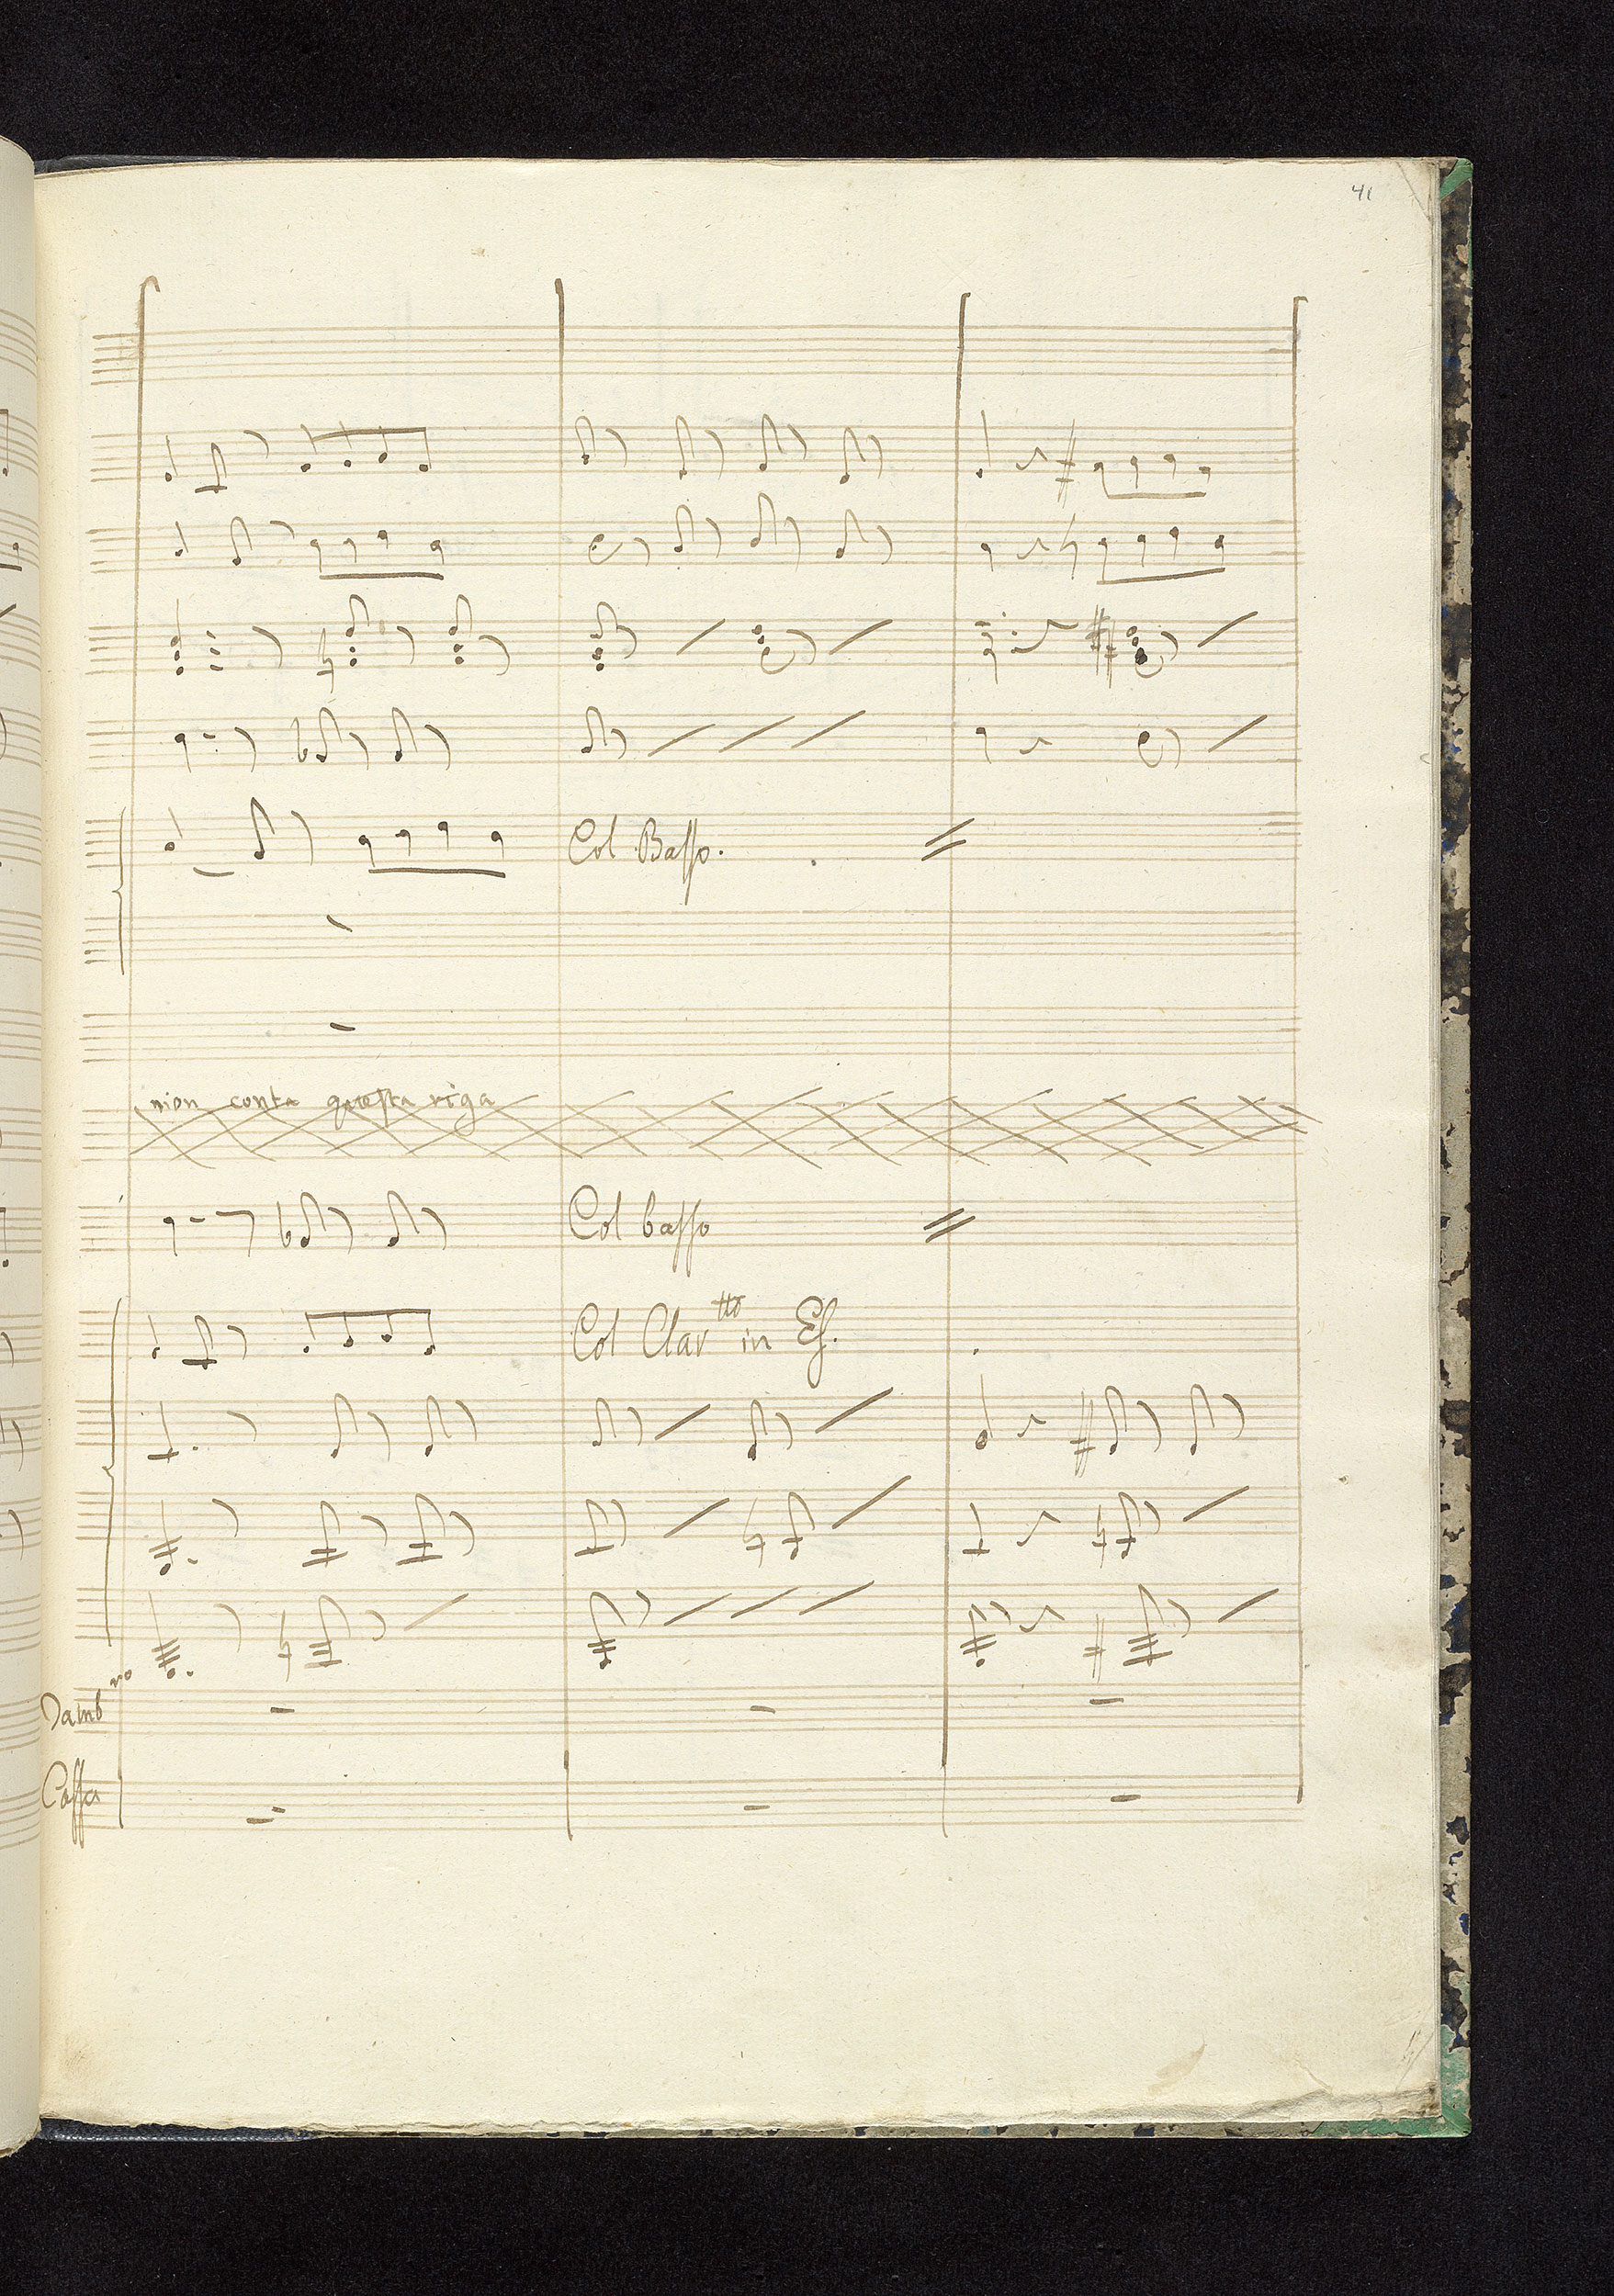 41
Col Basso.
non conta questa riga
Col basso
Col Clar tto in Es.
Tamb ro
Cassa